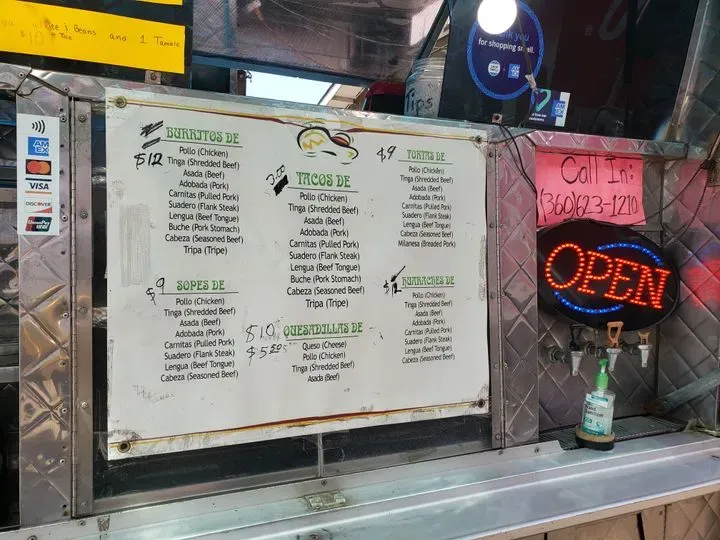 & Beans and 1 Tamale
$10 Tax
BURRITOS DE
$12
Pollo (Chicken)
Tinga (Shredded Beef)
Asada (Beef)
Adobada (Pork)
Carnitas (Pulled Pork)
Suadero (Flank Steak)
Lengua (Beef Tongue)
Buche (Pork Stomach)
Cabeza (Seasoned Beef)
Tripa (Tripe)
$9
SOPES DE
Pollo (Chicken)
Tinga (Shredded Beef)
Asada (Beef)
Adobada (Pork)
Carnitas (Pulled Pork)
Suadero (Flank Steak)
Lengua (Beef Tongue)
Cabeza (Seasoned Beef)
TACOS DE
Pollo (Chicken)
Tinga (Shredded Beef)
Asada (Beef)
Adobada (Pork)
Carnitas (Pulled Pork)
Suadero (Flank Steak)
Lengua (Beef Tongue)
Buche (Pork Stomach)
Cabeza (Seasoned Beef)
Tripa (Tripe)
$10 QUESADILLAS DE
$5
Queso (Cheese)
Pollo (Chicken)
Tinga (Shredded Beef)
Asada (Beef)
$9
TORTAS DE
Pollo (Chicken)
Tinga (Shredded Beef)
Asada (Beef)
Adobada (Pork)
Carnitas (Pulled Pork)
Suadero (Flank Steak)
Lengua (Beef Tongue)
Cabeza (Seasoned Beef)
Milanesa (Breaded Pork)
HUARACHES DE
Pollo (Chicken)
Tinga (Shredded Beef)
Asada (Beef)
Adobada (Pork)
Carnitas (Pulled Pork)
Suadero (Flank Steak)
Lengua (Beef Tongue)
Cabeza (Seasoned Beef)
AM EX
mastercard
VISA
DISCOVER
UnionPay
Tips
you
for shopping small.
AM EX
Call In:
(360)623-1210
OPEN